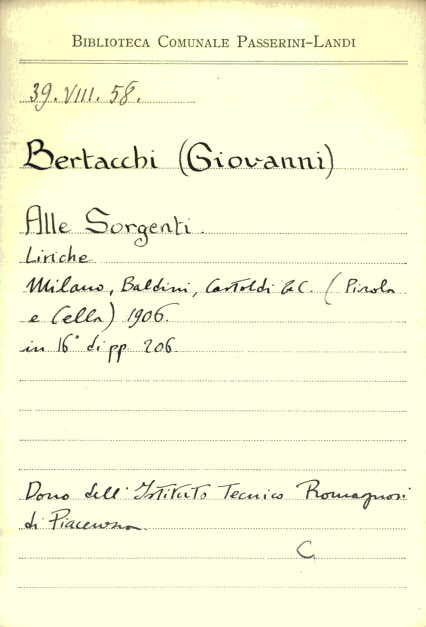 BIBLIOTECA COMUNALE PASSERINI-LANDI
39. VIII. 58.
Bertacchi (Giovanni)
Alle Sorgenti.
Liriche
Milano, Baldini, Castoldi & C. (Pirola
e Cella) 1906.
in 16° di pp. 206
Dono dell'Istituto Tecnico Romagnosi
di Piacenza.
C